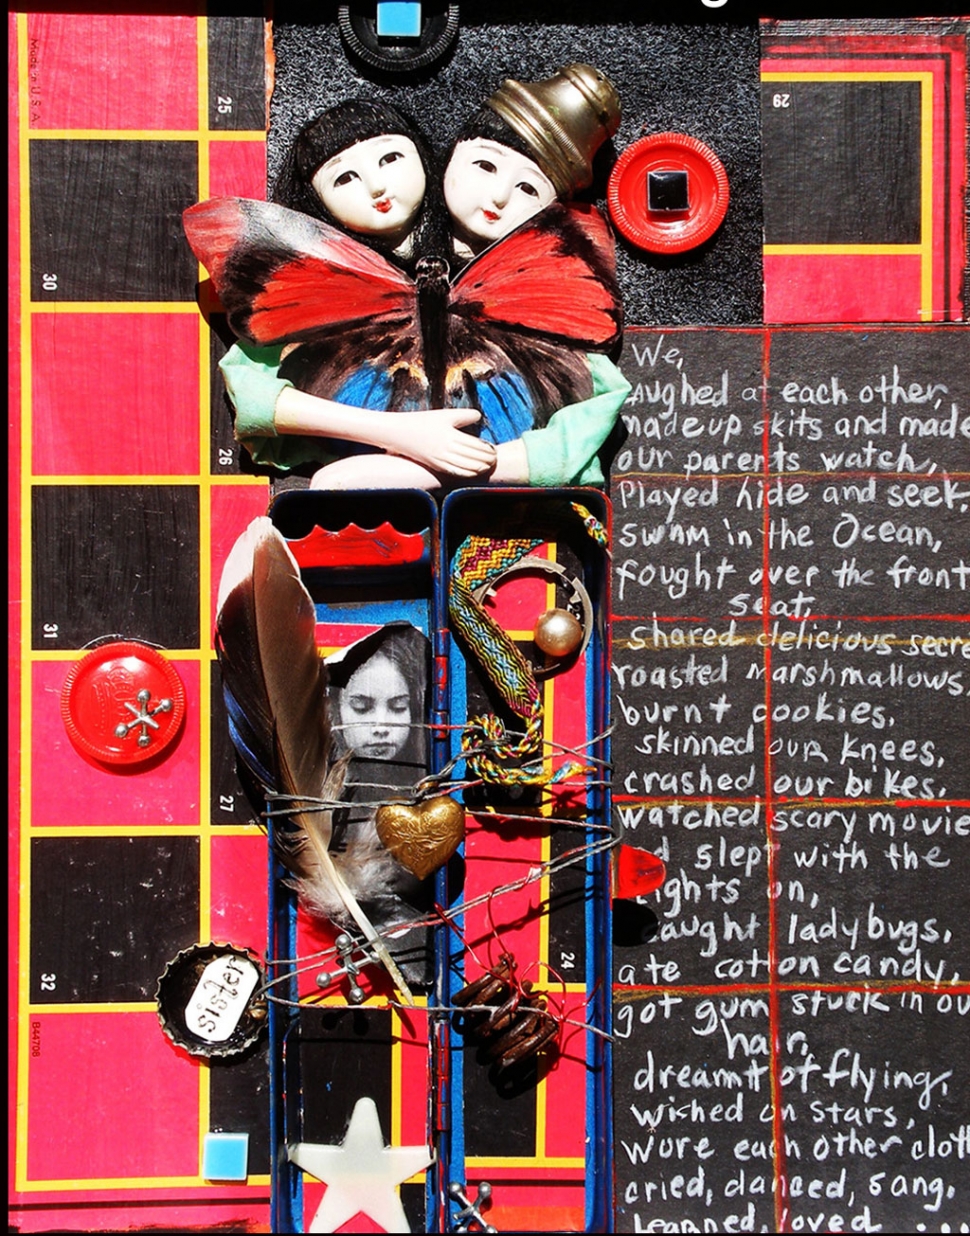 Made in U.S.A.
25
29
30
26
31
27
32
24
B44706
sister
We,
aughed at each other,
made up skits and made
our parents watch,
Played hide and seek,
swam in the Ocean,
fought over the front
seat,
shared delicious secre
roasted marshmallows,
burnt cookies,
skinned our knees,
crashed our bikes,
watched scary movie
d slept with the
ights on,
caught ladybugs,
ate cotton candy,
got gum stuck in ou
hair,
dreamt of flying,
wished on stars,
wore each other cloth
cried, danced, sang,
learned, loved ...